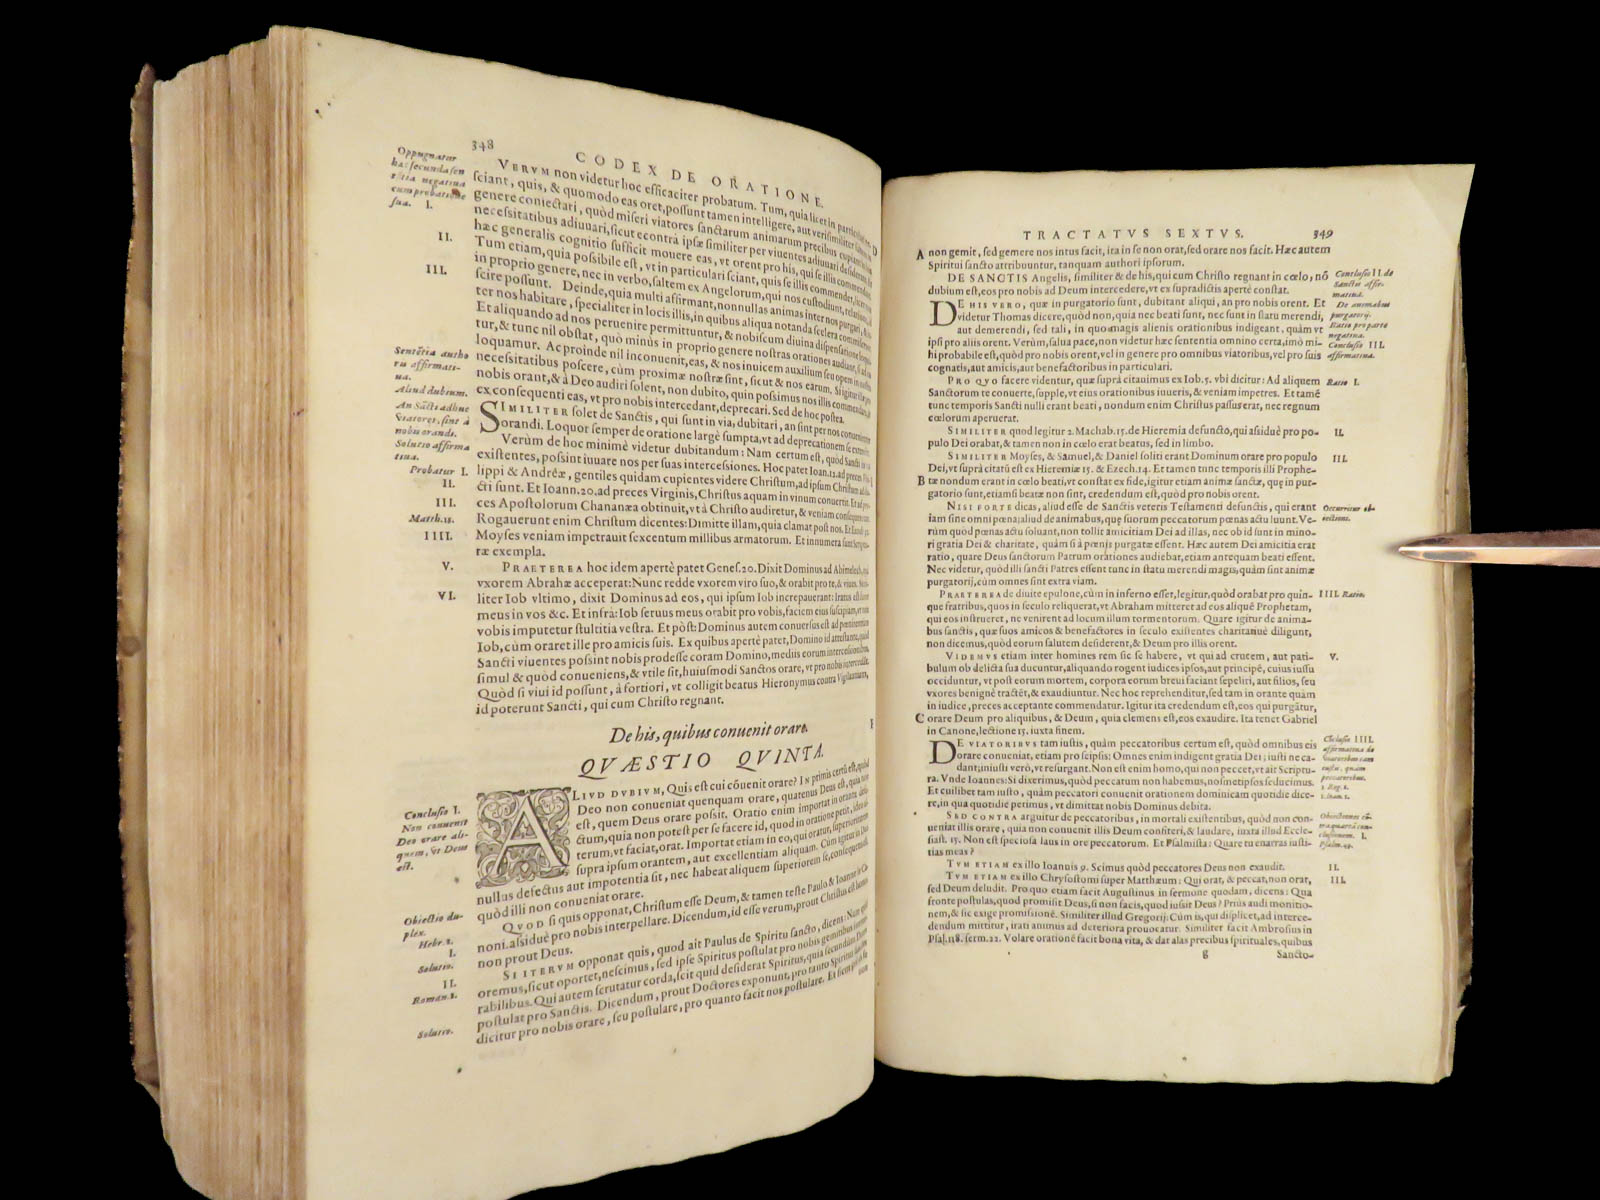 348
CODEX DE ORATIONE.
Oppugnatur
hæc secunda sen
tētia negatiua
cum probatione
sua. I.
II.
III.
Sentētia autho
ris affirmati-
ua.
Aliud dubium.
An Sācti adhuc
viatores, sint à
nobis orandi.
Solutio affirma
tiua.
Probatur I.
II.
III.
Matth.15.
IIII.
V.
VI.
VERVM non videtur hoc efficaciter probatum. Tum, quia licet in particulari
sciant, quis, & quomodo eas oret, possunt tamen intelligere, aut verisimiliter
genere coniectari, quòd miseri viatores sanctarum animarum precibus cupiant
necessitatibus adiuuari, sicut econtrà ipsæ similiter per viuentes adiuuari desiderant.
hæc generalis cognitio sufficit mouere eas, vt orent pro his, qui se illis commendant.
Tum etiam, quia possibile est, vt in particulari sciant, quis se illis commendet,
in proprio genere, nec in verbo, saltem ex Angelorum, qui nos custodiunt, relatione,
scire possunt. Deinde, quia multi affirmant, nonnullas animas inter nos purgari, &
ter nos habitare, specialiter in locis illis, in quibus aliqua notanda scelera commiserunt.
Et aliquando ad nos peruenire permittuntur, & nobiscum diuina dispensatione loquuntur
tur, & tunc nil obstat, quò minus in proprio genere nostras orationes audiant,
loquamur. Ac proinde nil inconuenit, eas, & nos inuicem auxilium seu opem in
necessitatibus poscere, cùm proximæ nostræ sint, sicut & nos earum. Si igitur
nobis orant, & à Deo audiri solent, non dubito, quin possimus nos illis commendare,
ex consequenti eas, vt pro nobis intercedant, deprecari. Sed de hoc postea.
SIMILITER solet de Sanctis, qui sunt in via, dubitari, an sint per nos conuenienter
orandi. Loquor semper de oratione largè sumpta, vt ad deprecationem se extendit.
Verùm de hoc minimè videtur dubitandum: Nam certum est, quòd Sancti in via
existentes, possint iuuare nos per suas intercessiones. Hoc patet Ioan.12. ad preces Phi-
lippi & Andreæ, gentiles quidam cupientes videre Christum, ad ipsum Christum
cti sunt. Et Ioann.20. ad preces Virginis, Christus aquam in vinum conuertit. Et ad pre-
ces Apostolorum Chananæa obtinuit, vt à Christo audiretur, & veniam consequeretur.
Rogauerunt enim Christum dicentes: Dimitte illam, quia clamat post nos. Et
Moyses veniam impetrauit sexcentum millibus armatorum. Et innumera sunt Scriptu-
ræ exempla.
PRAETEREA hoc idem apertè patet Genes.20. Dixit Dominus ad Abimelech, qui
vxorem Abrahæ acceperat: Nunc redde vxorem viro suo, & orabit pro te, & viues. Simi-
liter Iob vltimo, dixit Dominus ad eos, qui ipsum Iob increpauerant: Iratus est furor
meus in vos &c. Et infrà: Iob seruus meus orabit pro vobis, faciem eius suscipiam, vt non
vobis imputetur stultitia vestra. Et pòst: Dominus autem conuersus est ad pœnitentiam
Iob, cùm oraret ille pro amicis suis. Ex quibus apertè patet, Domino id attestante, quòd
Sancti viuentes possint nobis prodesse coram Domino, mediis eorum intercessionibus,
simul & quòd conueniens, & vtile sit, huiusmodi Sanctos orare, vt pro nobis intercedant.
Quòd si viui id possunt, à fortiori, vt colligit beatus Hieronymus contra Vigilantium,
id poterunt Sancti, qui cum Christo regnant.
De his, quibus conuenit orare.
QVÆSTIO QVINTA.
Conclusio I.
Non conuenit
Deo orare ali-
quem, vt Deus
est.
Obiectio du-
plex.
Hebr.2.
I.
Solutio.
II.
Roman.8.
Solutio.
ALIVD DVBIVM, Quis est cui cōuenit orare? In primis certū est, quòd
Deo non conueniat quenquam orare, quatenus Deus est, quia non
est, quem Deus orare possit. Oratio enim importat in orante defe-
ctum, quia non potest per se facere id, quod in oratione petit, ideo al-
terum, vt faciat, orat. Importat etiam in eo, qui oratur, superioritatem
supra ipsum orantem, aut excellentiam aliquam. Cùm igitur in Deo
nullus defectus aut impotentia sit, nec habeat aliquem superiorem se, consequens est
quòd illi non conueniat orare.
QVOD si quis opponat, Christum esse Deum, & tamen teste Paulo & Ioanne in Ca-
noni. assiduè pro nobis interpellare. Dicendum, id esse verum, prout Christus est homo
non prout Deus.
SI ITERVM opponat quis, quod ait Paulus de Spiritu sancto, dicens: Nam quid
oremus, sicut oportet, nescimus, sed ipse Spiritus postulat pro nobis gemitibus inenar-
rabilibus. Qui autem scrutatur corda, scit quid desiderat Spiritus, quia secundùm Deum
postulat pro Sanctis. Dicendum, prout Doctores exponunt, pro tanto Spiritus sanctus
dicitur pro nobis orare, seu postulare, pro quanto facit nos postulare. Et sicut
TRACTATVS SEXTVS. 349
A non gemit, sed gemere nos intus facit, ita in se non orat, sed orare nos facit. Hæc autem
Spiritui sancto attribuuntur, tanquam authori ipsorum.
DE SANCTIS Angelis, similiter & de his, qui cum Christo regnant in cœlo, nō
dubium est, eos pro nobis ad Deum intercedere, vt ex supradictis apertè constat.
DE HIS VERO, quæ in purgatorio sunt, dubitant aliqui, an pro nobis orent. Et
videtur Thomas dicere, quòd non, quia nec beati sunt, nec sunt in statu merendi,
aut demerendi, sed tali, in quo magis alienis orationibus indigeant, quàm vt
ipsi pro aliis orent. Verùm, salua pace, non videtur hæc sententia omnino certa, imò mi-
hi probabile est, quòd pro nobis orent, vel in genere pro omnibus viatoribus, vel pro suis
cognatis, aut amicis, aut benefactoribus in particulari.
PRO QVO facere videntur, quæ suprà citauimus ex Iob.5. vbi dicitur: Ad aliquem
Sanctorum te conuerte, supple, vt eius orationibus iuueris, & veniam impetres. Et tamē
tunc temporis Sancti nulli erant beati, nondum enim Christus passus erat, nec regnum
cœlorum aperuerat.
SIMILITER quod legitur 2. Machab.15. de Hieremia defuncto, qui assiduè pro po-
pulo Dei orabat, & tamen non in cœlo erat beatus, sed in limbo.
SIMILITER Moyses, & Samuel, & Daniel soliti erant Dominum orare pro populo
Dei, vt suprà citatū est ex Hieremiæ 15. & Ezech.14. Et tamen tunc temporis illi Prophe-
B tæ nondum erant in cœlo beati, vt constat ex fide, igitur etiam animæ sanctæ, quę in pur-
gatorio sunt, etiamsi beatæ non sint, credendum est, quòd pro nobis orent.
NISI FORTE dicas, aliud esse de Sanctis veteris Testamenti defunctis, qui erant
iam sine omni pœna, aliud de animabus, quę suorum peccatorum pœnas actu luunt. Ve-
rùm quòd pœnas actu soluant, non tollit amicitiam Dei ad illas, nec ob id sunt in mino-
ri gratia Dei & charitate, quàm si à pœnis purgatæ essent. Hæc autem Dei amicitia erat
ratio, quare Deus sanctorum Patrum orationes audiebat, etiam antequam beati essent.
Nec videtur, quòd illi sancti Patres essent tunc in statu merendi magis, quàm sint animæ
purgatorij, cùm omnes sint extra viam.
PRAETEREA de diuite epulone, cùm in inferno esset, legitur, quòd orabat pro quin-
que fratribus, quos in seculo reliquerat, vt Abraham mitteret ad eos aliquē Prophetam,
qui eos instrueret, ne venirent ad locum illum tormentorum. Quare igitur de anima-
bus sanctis, quæ suos amicos & benefactores in seculo existentes charitatiuè diligunt,
non dicemus, quòd eorum salutem desiderent, & Deum pro illis orent.
VIDEMVS etiam inter homines rem sic se habere, vt qui ad crucem, aut pati-
bulum ob delicta sua ducuntur, aliquando rogent iudices ipsos, aut principē, cuius iussu
occiduntur, vt post eorum mortem, corpora eorum breui faciant sepeliri, aut filios, seu
vxores benignè tractēt, & exaudiuntur. Nec hoc reprehenditur, sed tam in orante quàm
in iudice, preces acceptante commendatur. Igitur ita credendum est, eos qui purgātur,
C orare Deum pro aliquibus, & Deum, quia clemens est, eos exaudire. Ita tenet Gabriel
in Canone, lectione 15. iuxta finem.
DE VIATORIBVS tam iustis, quàm peccatoribus certum est, quòd omnibus eis
orare conueniat, etiam pro seipsis: Omnes enim indigent gratia Dei; iusti ne ca-
dant; iniusti verò, vt resurgant. Non est enim homo, qui non peccet, vt ait Scriptu-
ra. Vnde Ioannes: Si dixerimus, quòd peccatum non habemus, nosmetipsos seducimus.
Et cuilibet tam iusto, quàm peccatori conuenit orationem dominicam quotidie dice-
re, in qua quotidie petimus, vt dimittat nobis Dominus debita.
SED CONTRA arguitur de peccatoribus, in mortali existentibus, quòd non con-
ueniat illis orare, quia non conuenit illis Deum confiteri, & laudare, iuxta illud Eccle-
siast. 15. Non est speciosa laus in ore peccatorum. Et Psalmista: Quare tu enarras iusti-
tias meas?
TVM ETIAM ex illo Ioannis 9. Scimus quòd peccatores Deus non exaudit.
TVM ETIAM ex illo Chrysostomi super Matthæum: Qui orat, & peccat, non orat,
sed Deum deludit. Pro quo etiam facit Augustinus in sermone quodam, dicens: Qua
fronte postulas, quod promisit Deus, si non facis, quod iussit Deus? Priùs audi monitio-
nem, & sic exige promissionē. Similiter illud Gregorij: Cùm is, qui displicet, ad interce-
dendum mittitur, irati animus ad deteriora prouocatur. Similiter facit Ambrosius in
Psal.118. serm.22. Volare orationē facit bona vita, & dat alas precibus spirituales, quibus
g Sancto-
Conclusio II. de
Sanctis affir-
matiua.
De animabus
purgatorij.
Ratio pro parte
negatiua.
Conclusio III.
affirmatiua.
Ratio I.
II.
III.
Occurritur ob-
iectioni.
IIII. Ratio.
V.
Cōclusio IIII.
affirmatiua de
viatoribus tam
iustis, quàm
peccatoribus.
3. Reg. 8.
1. Ioan. 1.
Obiectiones cō-
tra quartā con-
clusionem. I.
Psalm.49.
II.
III.